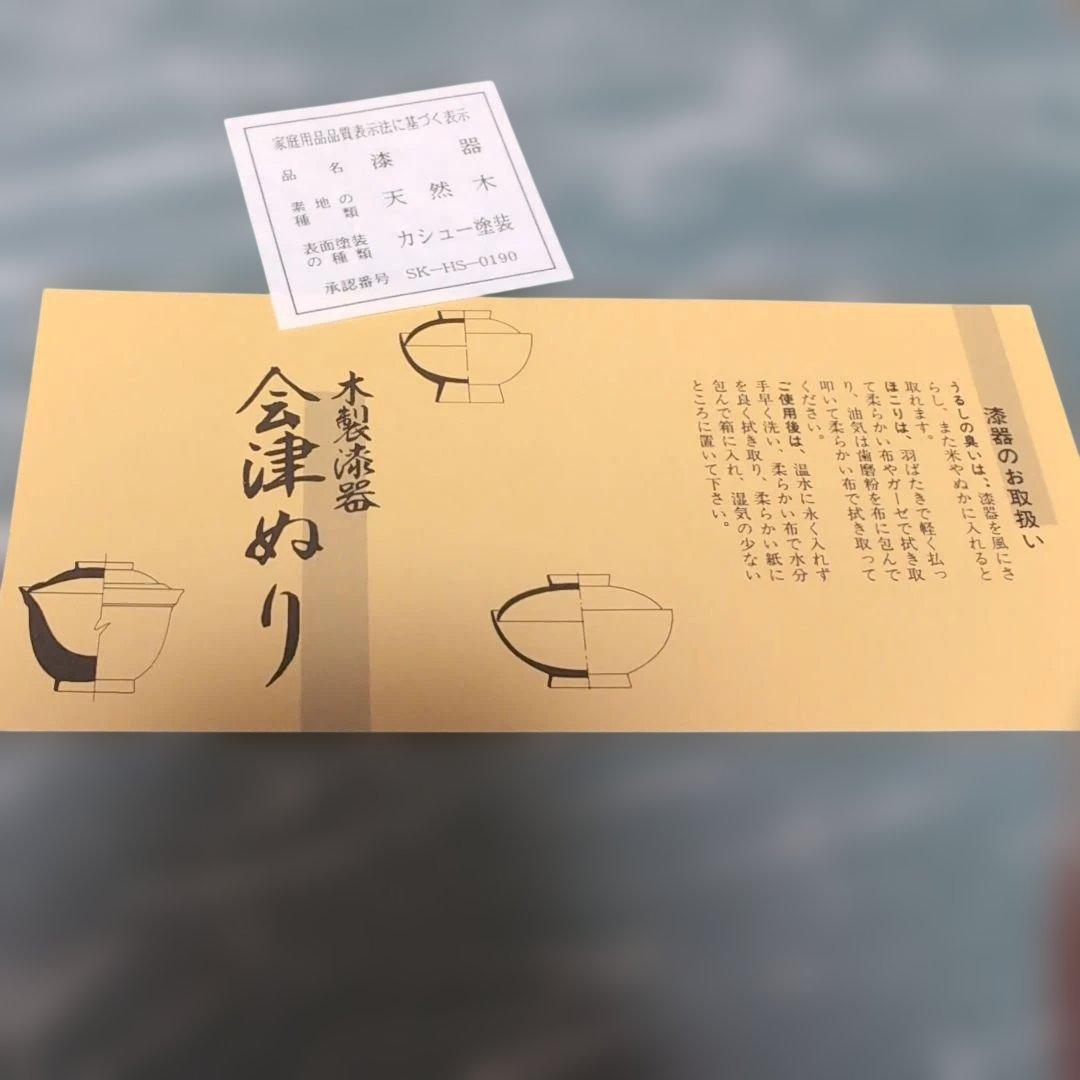 家庭用品品質表示法に基づく表示
品名 漆器
素地の種類 天然木
表面塗装の種類 カシュー塗装
承認番号 SK-HS-0190
漆器のお取扱い
うるしの臭いは、漆器を風にさ
らし、また米やぬかに入れると
取れます。
ほこりは、羽ばたきで軽く払っ
て柔らかい布やガーゼで拭き取
り、油気は歯磨粉を布に包んで
叩いて柔らかい布で拭き取って
ください。
ご使用後は、温水に永く入れず
手早く洗い、柔らかい布で水分
を良く拭き取り、柔らかい紙に
包んで箱に入れ、湿気の少ない
ところに置いて下さい。
木製漆器
会津ぬり